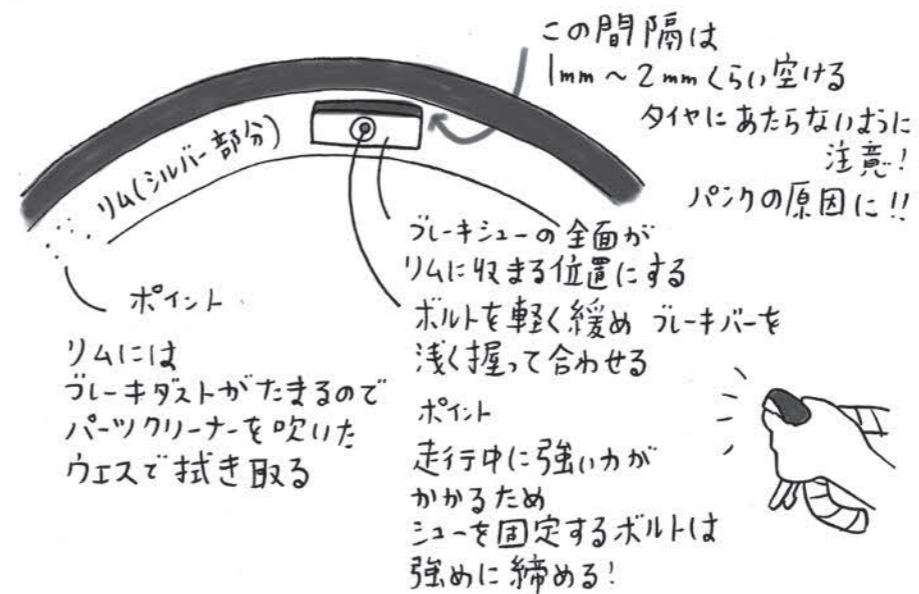 この間隔は
1mm～2mmくらい空ける
タイヤにあたらないように
注意！
パンクの原因に！！
リム(シルバー部分)
ブレーキシューの全面が
リムに収まる位置にする
ボルトを軽く緩め ブレーキバーを
浅く握って合わせる
ポイント
リムには
ブレーキダストがたまるので
パーツクリーナーを吹いた
ウエスで拭き取る
ポイント
走行中に強い力が
かかるため
シューを固定するボルトは
強めに締める！